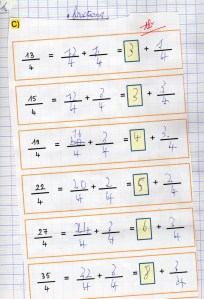 fractions
C)
13/4 = 12/4 + 1/4 = 3 + 1/4
15/4 = 12/4 + 3/4 = 3 + 3/4
19/4 = /4 + 3/4 = 4 + 3/4
22/4 = 20/4 + 2/4 = 5 + 2/4
27/4 = 24/4 + 3/4 = 6 + 3/4
35/4 = 32/4 + 3/4 = 8 + 3/4